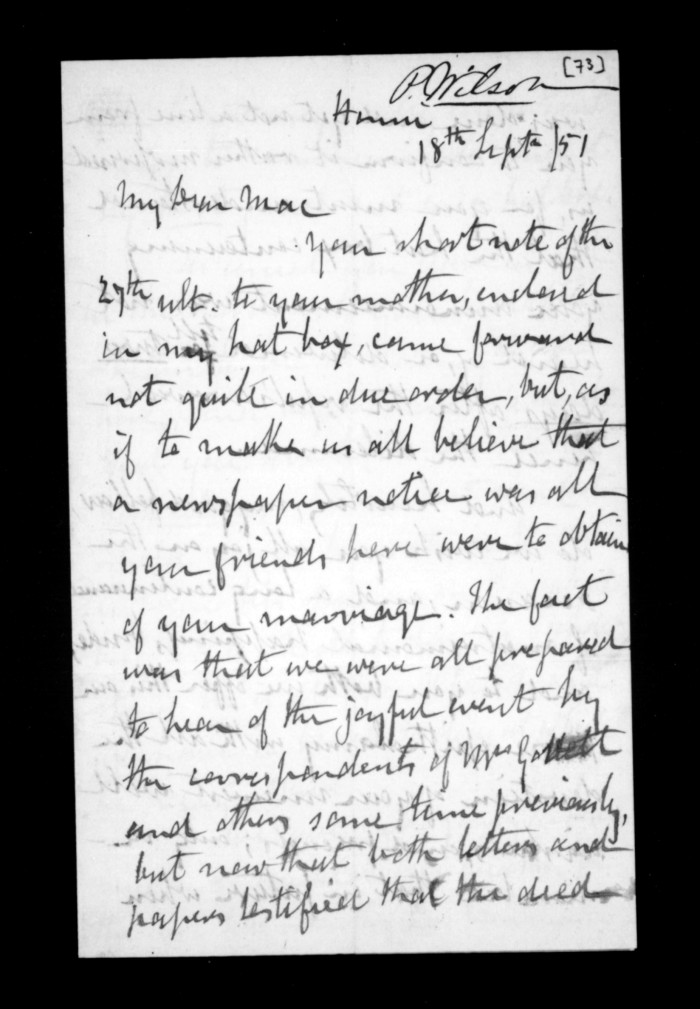 [73]
P. Wilson
Home
18th Septr /51
My Dear Mac
Your short note of the
27th ult. to your mother, enclosed
in my hat box, came forward
not quite in due order, but, as
if to make us all believe that
a newspaper notice was all
your friends here were to obtain
of your marriage. The fact
was that we were all prepared
to hear of the joyful event by
the correspondents of Mrs
and others some time previously,
but now that both letters and
papers testified that the deed